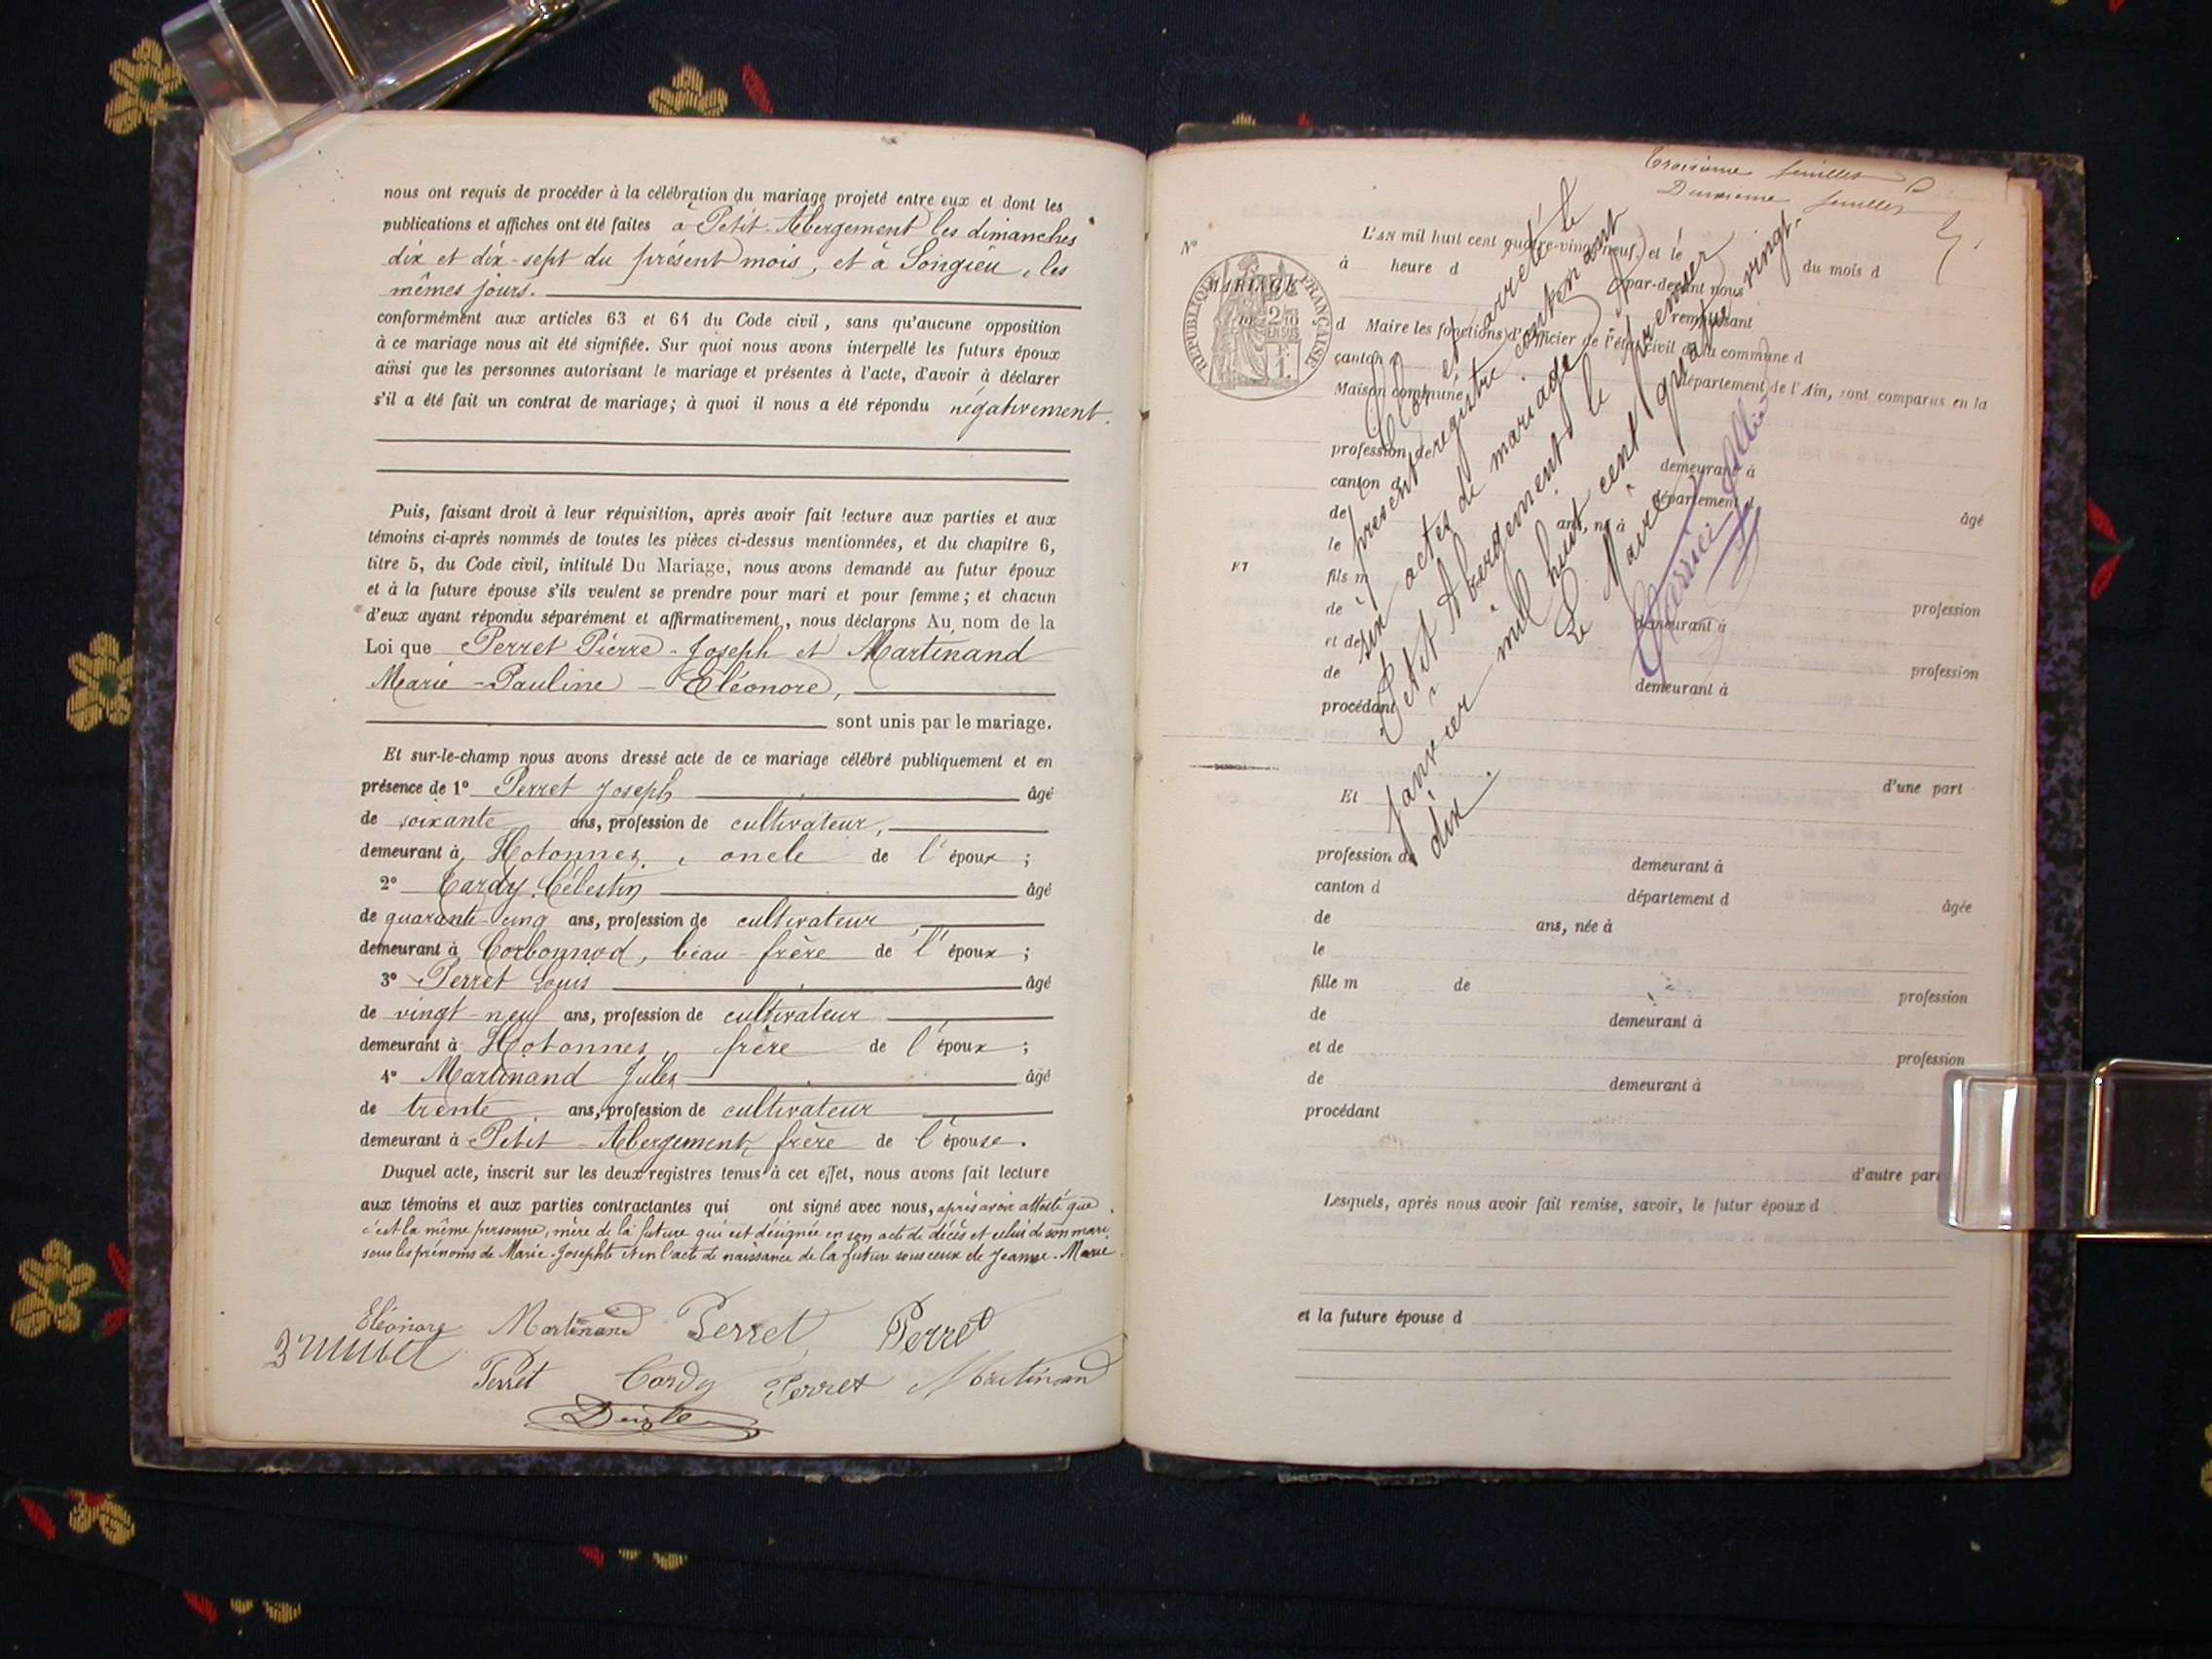 nous ont requis de procéder à la célébration du mariage projeté entre eux et dont les
publications et affiches ont été faites à Petit-Abergement les dimanches
dix et dix-sept du présent mois, et à Songieu, les
mêmes jours.
conformément aux articles 63 et 64 du Code civil, sans qu'aucune opposition
à ce mariage nous ait été signifiée. Sur quoi nous avons interpellé les futurs époux
ainsi que les personnes autorisant le mariage et présentes à l'acte, d'avoir à déclarer
s'il a été fait un contrat de mariage; à quoi il nous a été répondu négativement.
Puis, faisant droit à leur réquisition, après avoir fait lecture aux parties et aux
témoins ci-après nommés de toutes les pièces ci-dessus mentionnées, et du chapitre 6,
titre 5, du Code civil, intitulé Du Mariage, nous avons demandé au futur époux
et à la future épouse s'ils veulent se prendre pour mari et pour femme; et chacun
d'eux ayant répondu séparément et affirmativement, nous déclarons Au nom de la
Loi que Perret Pierre-Joseph et Martinand
Marie-Pauline-Eléonore,
sont unis par le mariage.
Et sur-le-champ nous avons dressé acte de ce mariage célébré publiquement et en
présence de 1° Perret Joseph âgé
de soixante ans, profession de cultivateur,
demeurant à Hotonnes, oncle de l'époux;
2° Cardy Célestin âgé
de quarante-cinq ans, profession de cultivateur,
demeurant à Corbonnod, beau-frère de l'époux;
3° Perret Louis âgé
de vingt-neuf ans, profession de cultivateur
demeurant à Hotonnes, frère de l'époux;
4° Martinand Jules âgé
de trente ans, profession de cultivateur
demeurant à Petit-Abergement, frère de l'épouse.
Duquel acte, inscrit sur les deux registres tenus à cet effet, nous avons fait lecture
aux témoins et aux parties contractantes qui ont signé avec nous, après avoir attesté que
c'est la même personne, mère de la future qui est désignée en son acte de décès et celui de son mari,
sous les prénoms de Marie-Josephte et en l'acte de naissance de la future sous ceux de Jeanne-Marie
Eléonore Martinand Perret Perret
Perret Cardy Perret Martinand
Troisième feuillet
Deuxième feuillet
N°
MARIAGE
RÉPUBLIQUE FRANÇAISE
2/10 EN SUS
L'AN mil huit cent quatre-vingt-neuf, et le
à heure d du mois d
par-devant nous
remplissant
d Maire les fonctions d'officier de l'état civil de la commune d
canton d département de l'Ain, sont comparus en la
Maison commune
profession de demeurant à
canton d département d
de ans, né à âgé
le
ET
fils m
de profession
demeurant à
et de
de profession
demeurant à
procédant
d'une part
Clos et arrêté le
présent registre contenant
six actes de mariage. A
Petit Abergement le premier
janvier mil huit cent quatre vingt-
dix.
Le Maire
Et
profession de demeurant à
canton d département d
de ans, née à âgée
le
fille m de profession
de demeurant à
et de profession
de demeurant à
procédant
d'autre part
Lesquels, après nous avoir fait remise, savoir, le futur époux d
et la future épouse d